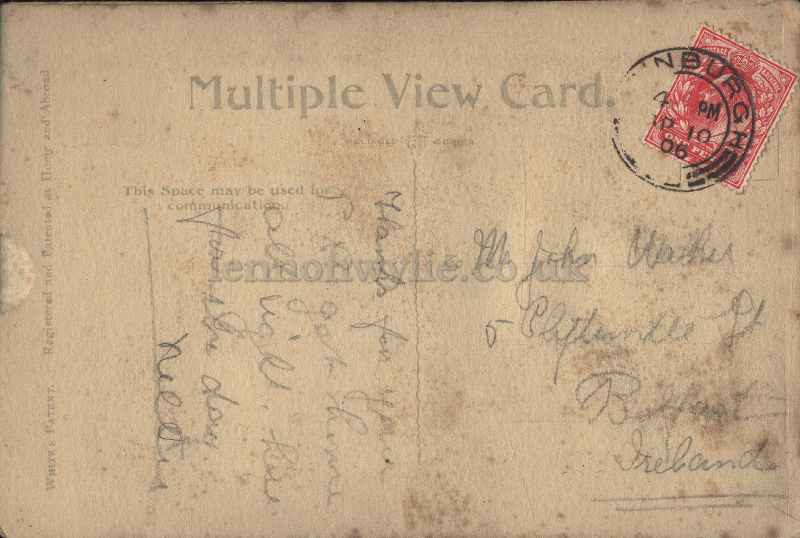 Multiple View Card.
RELIABLE SERIES
This Space may be used for
communication.
WHITE'S PATENT. Registered and Patented at Home and Abroad
INBURGH
4 PM
AP 10
06
ONE PE
lennonwylie.co.uk
for you
P.C. got home
all right, here
for the day.
Nellie
Mr John Walker
5 Cliftonville St
Belfast
Ireland